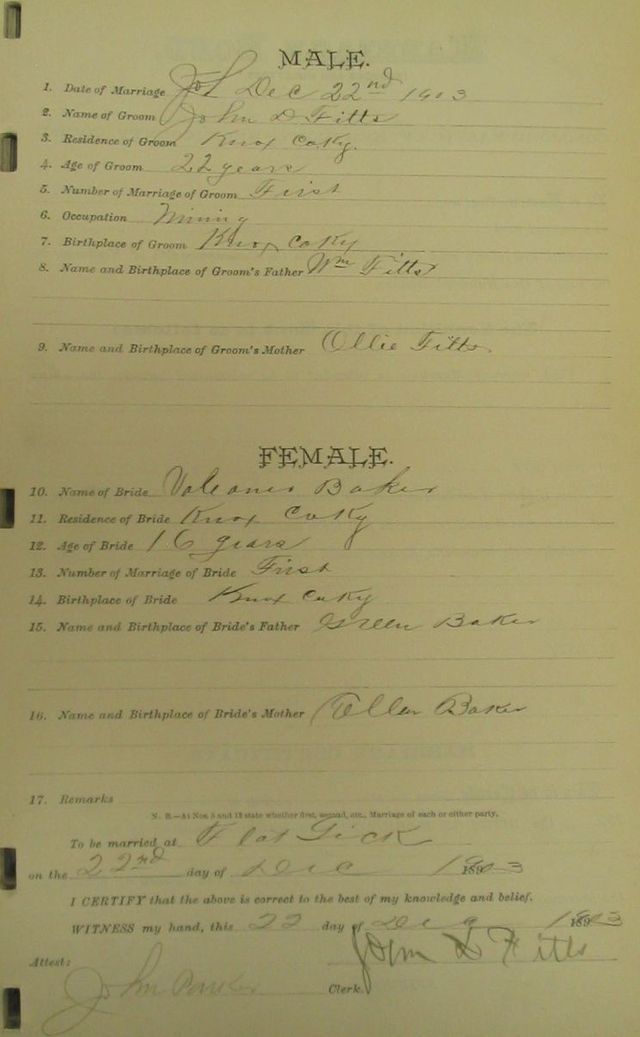 MALE.
1. Date of Marriage Dec 22nd 1903
2. Name of Groom John D Fitts
3. Residence of Groom Knox Co Ky.
4. Age of Groom 22 years
5. Number of Marriage of Groom First
6. Occupation Mining
7. Birthplace of Groom Knox Co Ky
8. Name and Birthplace of Groom's Father Wm Fitts
9. Name and Birthplace of Groom's Mother Ollie Fitts
FEMALE.
10. Name of Bride Baker
11. Residence of Bride Knox Co Ky
12. Age of Bride 16 years
13. Number of Marriage of Bride First
14. Birthplace of Bride Knox Co Ky
15. Name and Birthplace of Bride's Father Green Baker
16. Name and Birthplace of Bride's Mother Ellen Baker
17. Remarks
N. B.—At Nos. 5 and 13 state whether first, second, etc., Marriage of each or either party.
To be married at Flat Lick
on the 22nd day of Dec 1903
I CERTIFY that the above is correct to the best of my knowledge and belief.
WITNESS my hand, this 22 day of Dec 1903
John D Fitts
Attest:
John Parker Clerk